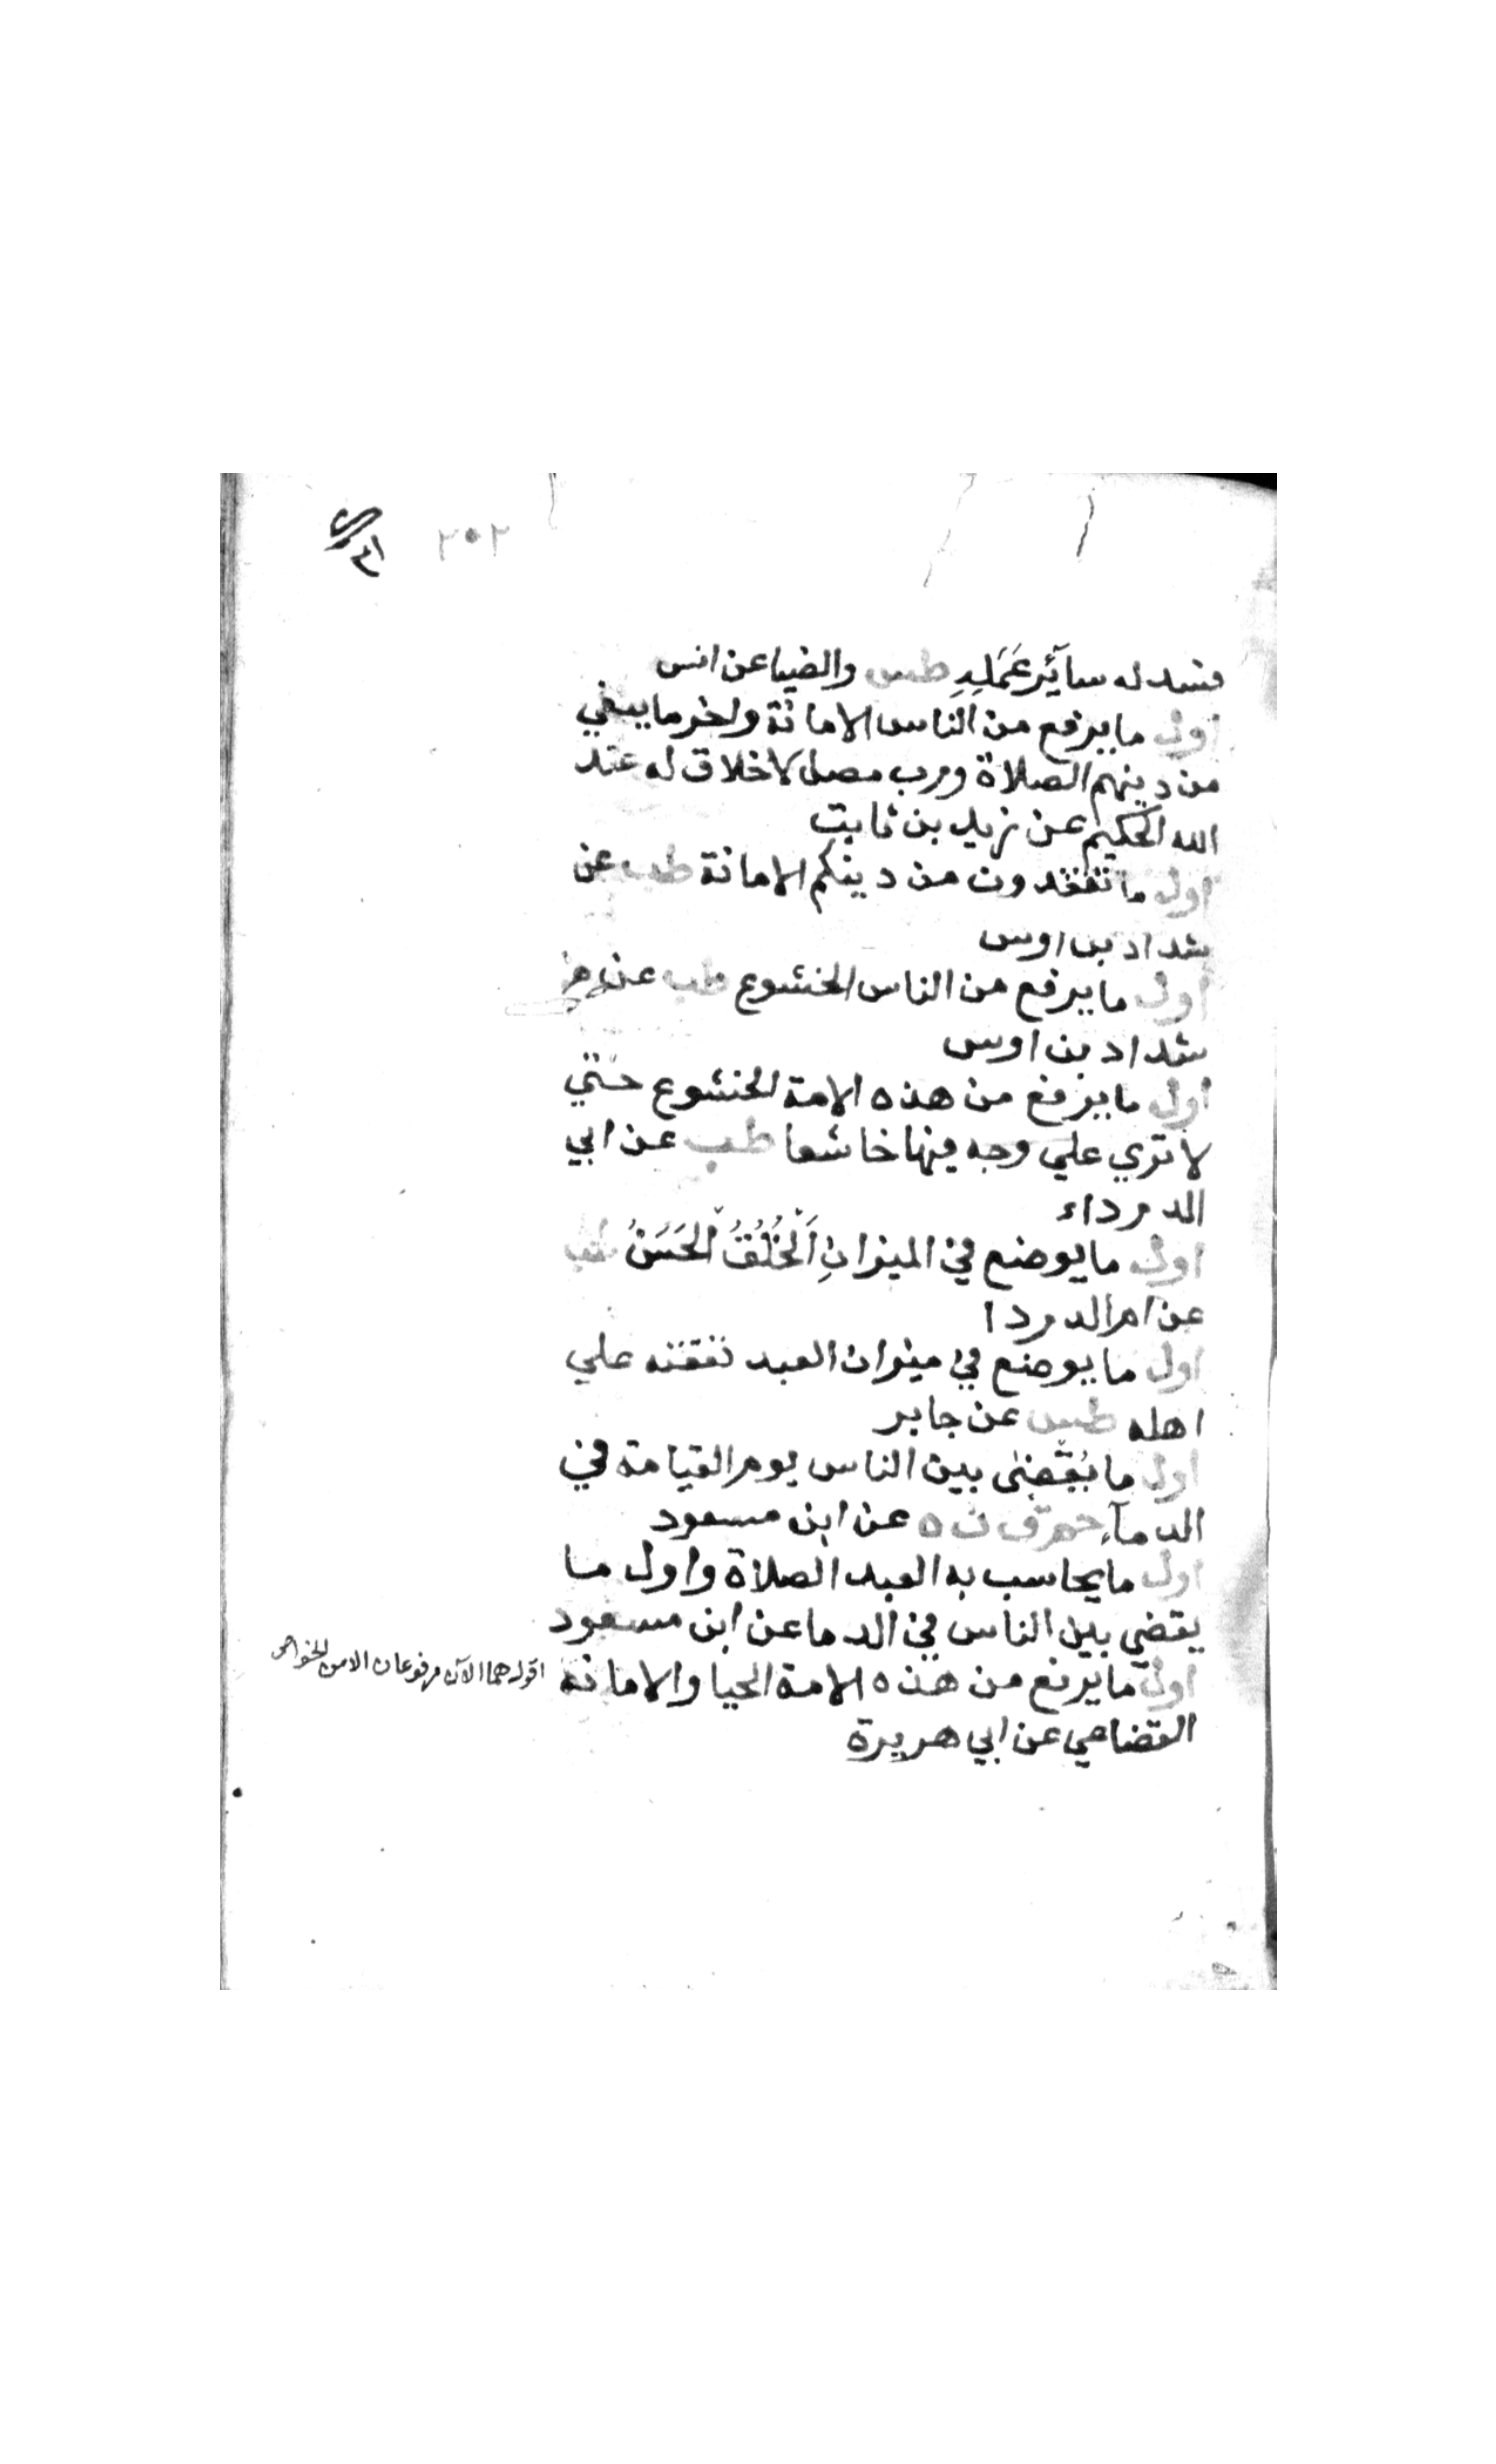 ٢٠٢
فسد له سآئر عَمَلِهِ طس والضيا عن انس
اول ما يرفع من الناس الامانة واخر ما يبقي
من دينهم الصلاة ورب مصل لا خلاق له عند
الله الحكيم عن زيد بن ثابت
اول ما تفقدون من دينكم الامانة طب عن
شداد بن اوس
اول ما يرفع من الناس الخشوع طب عن
شداد بن اوس
اول ما يرفع من هذه الامة الخشوع حتي
لا تري علي وجه فيها خاشعا طب عن ابي
الدرداء
اول ما يوضع في الميزانِ اَلْخُلُقُ الْحَسَنُ طب
عن ام الدردا
اول ما يوضع في ميزان العبد نفقته علي
اهله طس عن جابر
اول ما يُقْضىٰ بين الناس يوم القيامة في
الدمآءِ حم ق ن ه عن ابن مسعود
اول ما يحاسب به العبد الصلاة واول ما
يقضي بين الناس في الدما عن ابن مسعود
اول ما يرفع من هذه الامة الحيا والامانة
اقول هما الآن مرفوعان الا من الخواص
القضاعي عن ابي هريرة